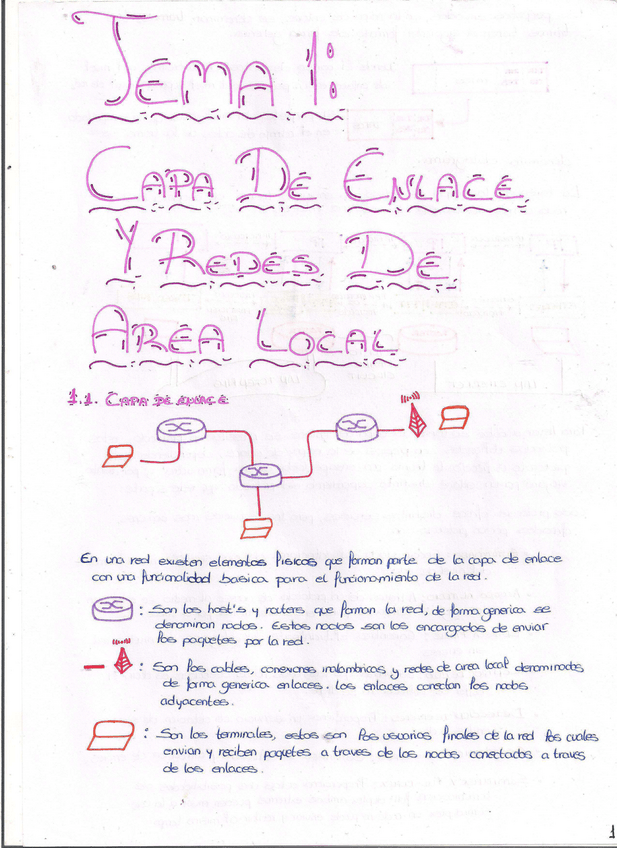 TEMA 1:
CAPA DE ENLACE
Y REDES DE
AREA LOCAL
1.1. CAPA DE ENLACE
En una red existen elementos fisicos que forman parte de la capa de enlace
con una funcionalidad basica para el funcionamiento de la red.
: Son los host's y routers que forman la red, de forma generica se
denominan nodos. Estos nodos son los encargados de enviar
los paquetes por la red.
: Son los cables, conexiones inalambricas y redes de area local denominados
de forma generica enlaces. Los enlaces conectan los nodos
adyacentes.
: Son los terminales, estos son los usuarios finales de la red los cuales
envian y reciben paquetes a traves de los nodos conectados a traves
de los enlaces.
1